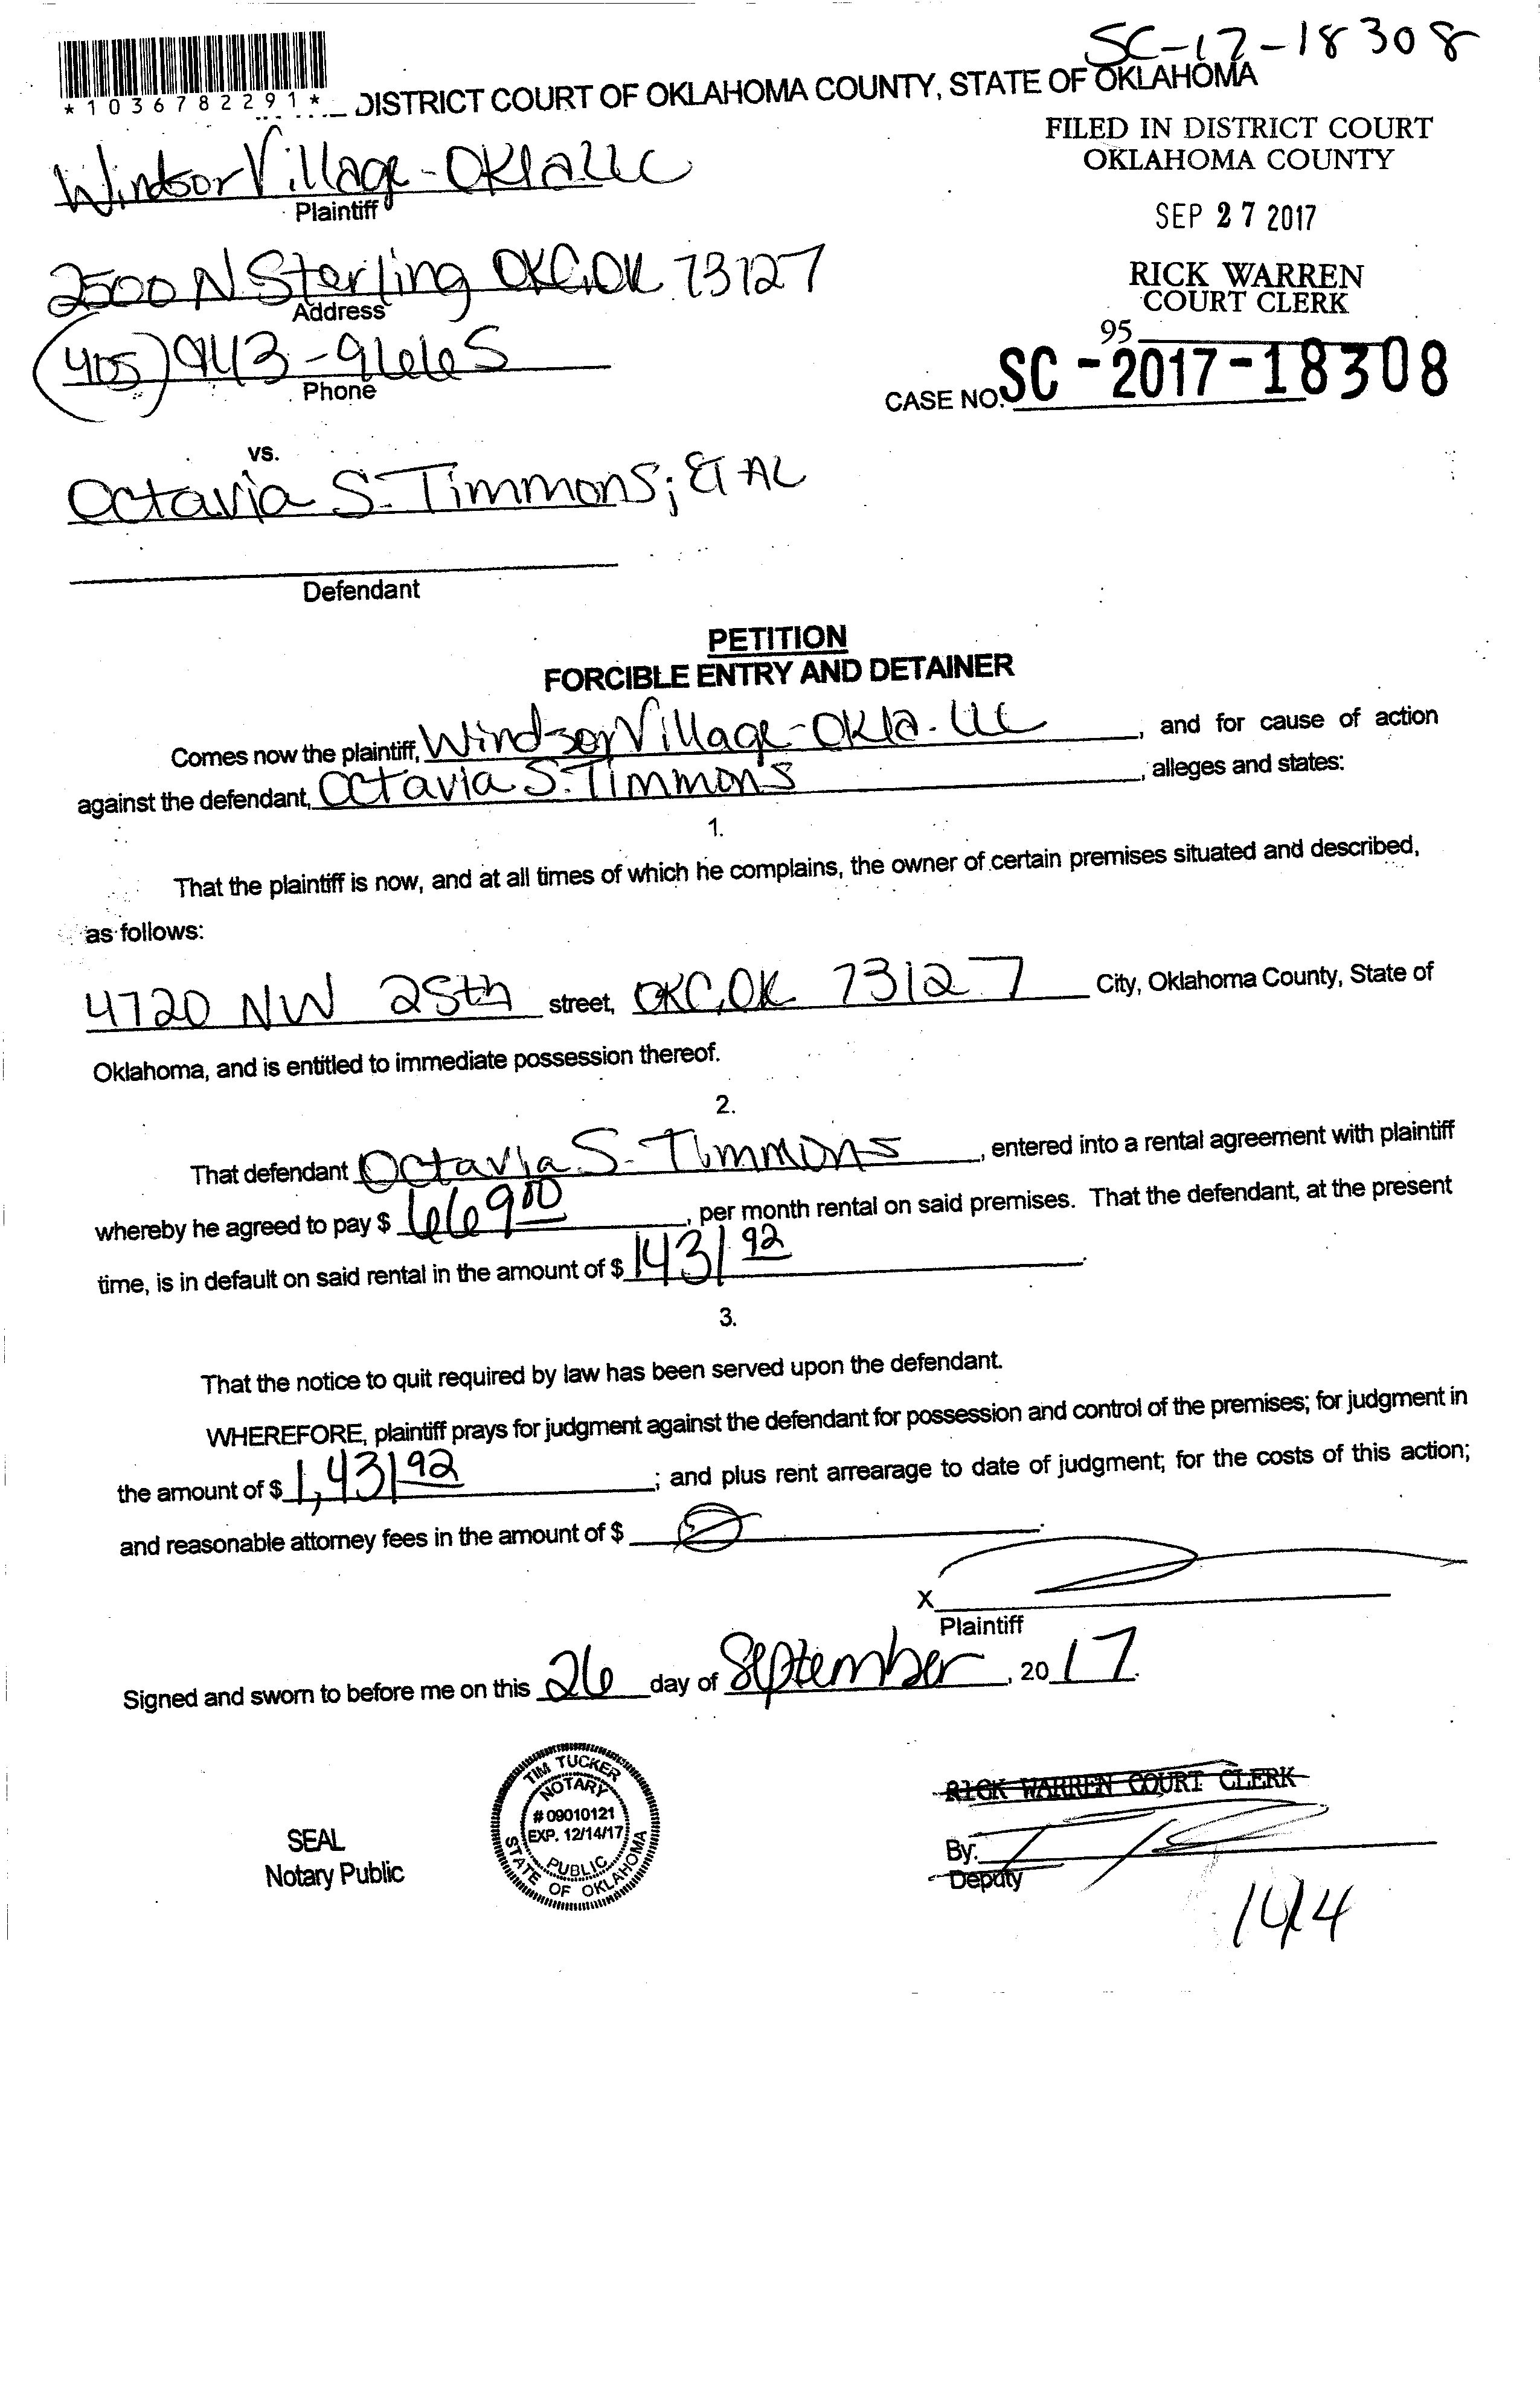 SC-17-18308
*1036782291*
DISTRICT COURT OF OKLAHOMA COUNTY, STATE OF OKLAHOMA
FILED IN DISTRICT COURT
OKLAHOMA COUNTY
Windsor Village-Okla LLC
Plaintiff
SEP 27 2017
2500 N Sterling OKC, OK 73127
Address
RICK WARREN
COURT CLERK
95
(405) 943-9665
Phone
CASE NO. SC-2017-18308
vs.
Octavia S. Timmons; ET AL
Defendant
PETITION
FORCIBLE ENTRY AND DETAINER
Comes now the plaintiff, Windsor Village-Okla. LLC, and for cause of action
against the defendant, Octavia S. Timmons, alleges and states:
1.
That the plaintiff is now, and at all times of which he complains, the owner of certain premises situated and described,
as follows:
4720 NW 25th street, OKC, OK 73127 City, Oklahoma County, State of
Oklahoma, and is entitled to immediate possession thereof.
2.
That defendant Octavia S. Timmons, entered into a rental agreement with plaintiff
whereby he agreed to pay $ 669 00, per month rental on said premises. That the defendant, at the present
time, is in default on said rental in the amount of $ 1431 92.
3.
That the notice to quit required by law has been served upon the defendant.
WHEREFORE, plaintiff prays for judgment against the defendant for possession and control of the premises; for judgment in
the amount of $ 1,431 92; and plus rent arrearage to date of judgment; for the costs of this action;
and reasonable attorney fees in the amount of $ Ø.
X
Plaintiff
Signed and sworn to before me on this 26 day of September, 2017.
TIM TUCKER
NOTARY
# 09010121
EXP. 12/14/17
PUBLIC
STATE OF OKLAHOMA
SEAL
Notary Public
RICK WARREN COURT CLERK
By:
Deputy